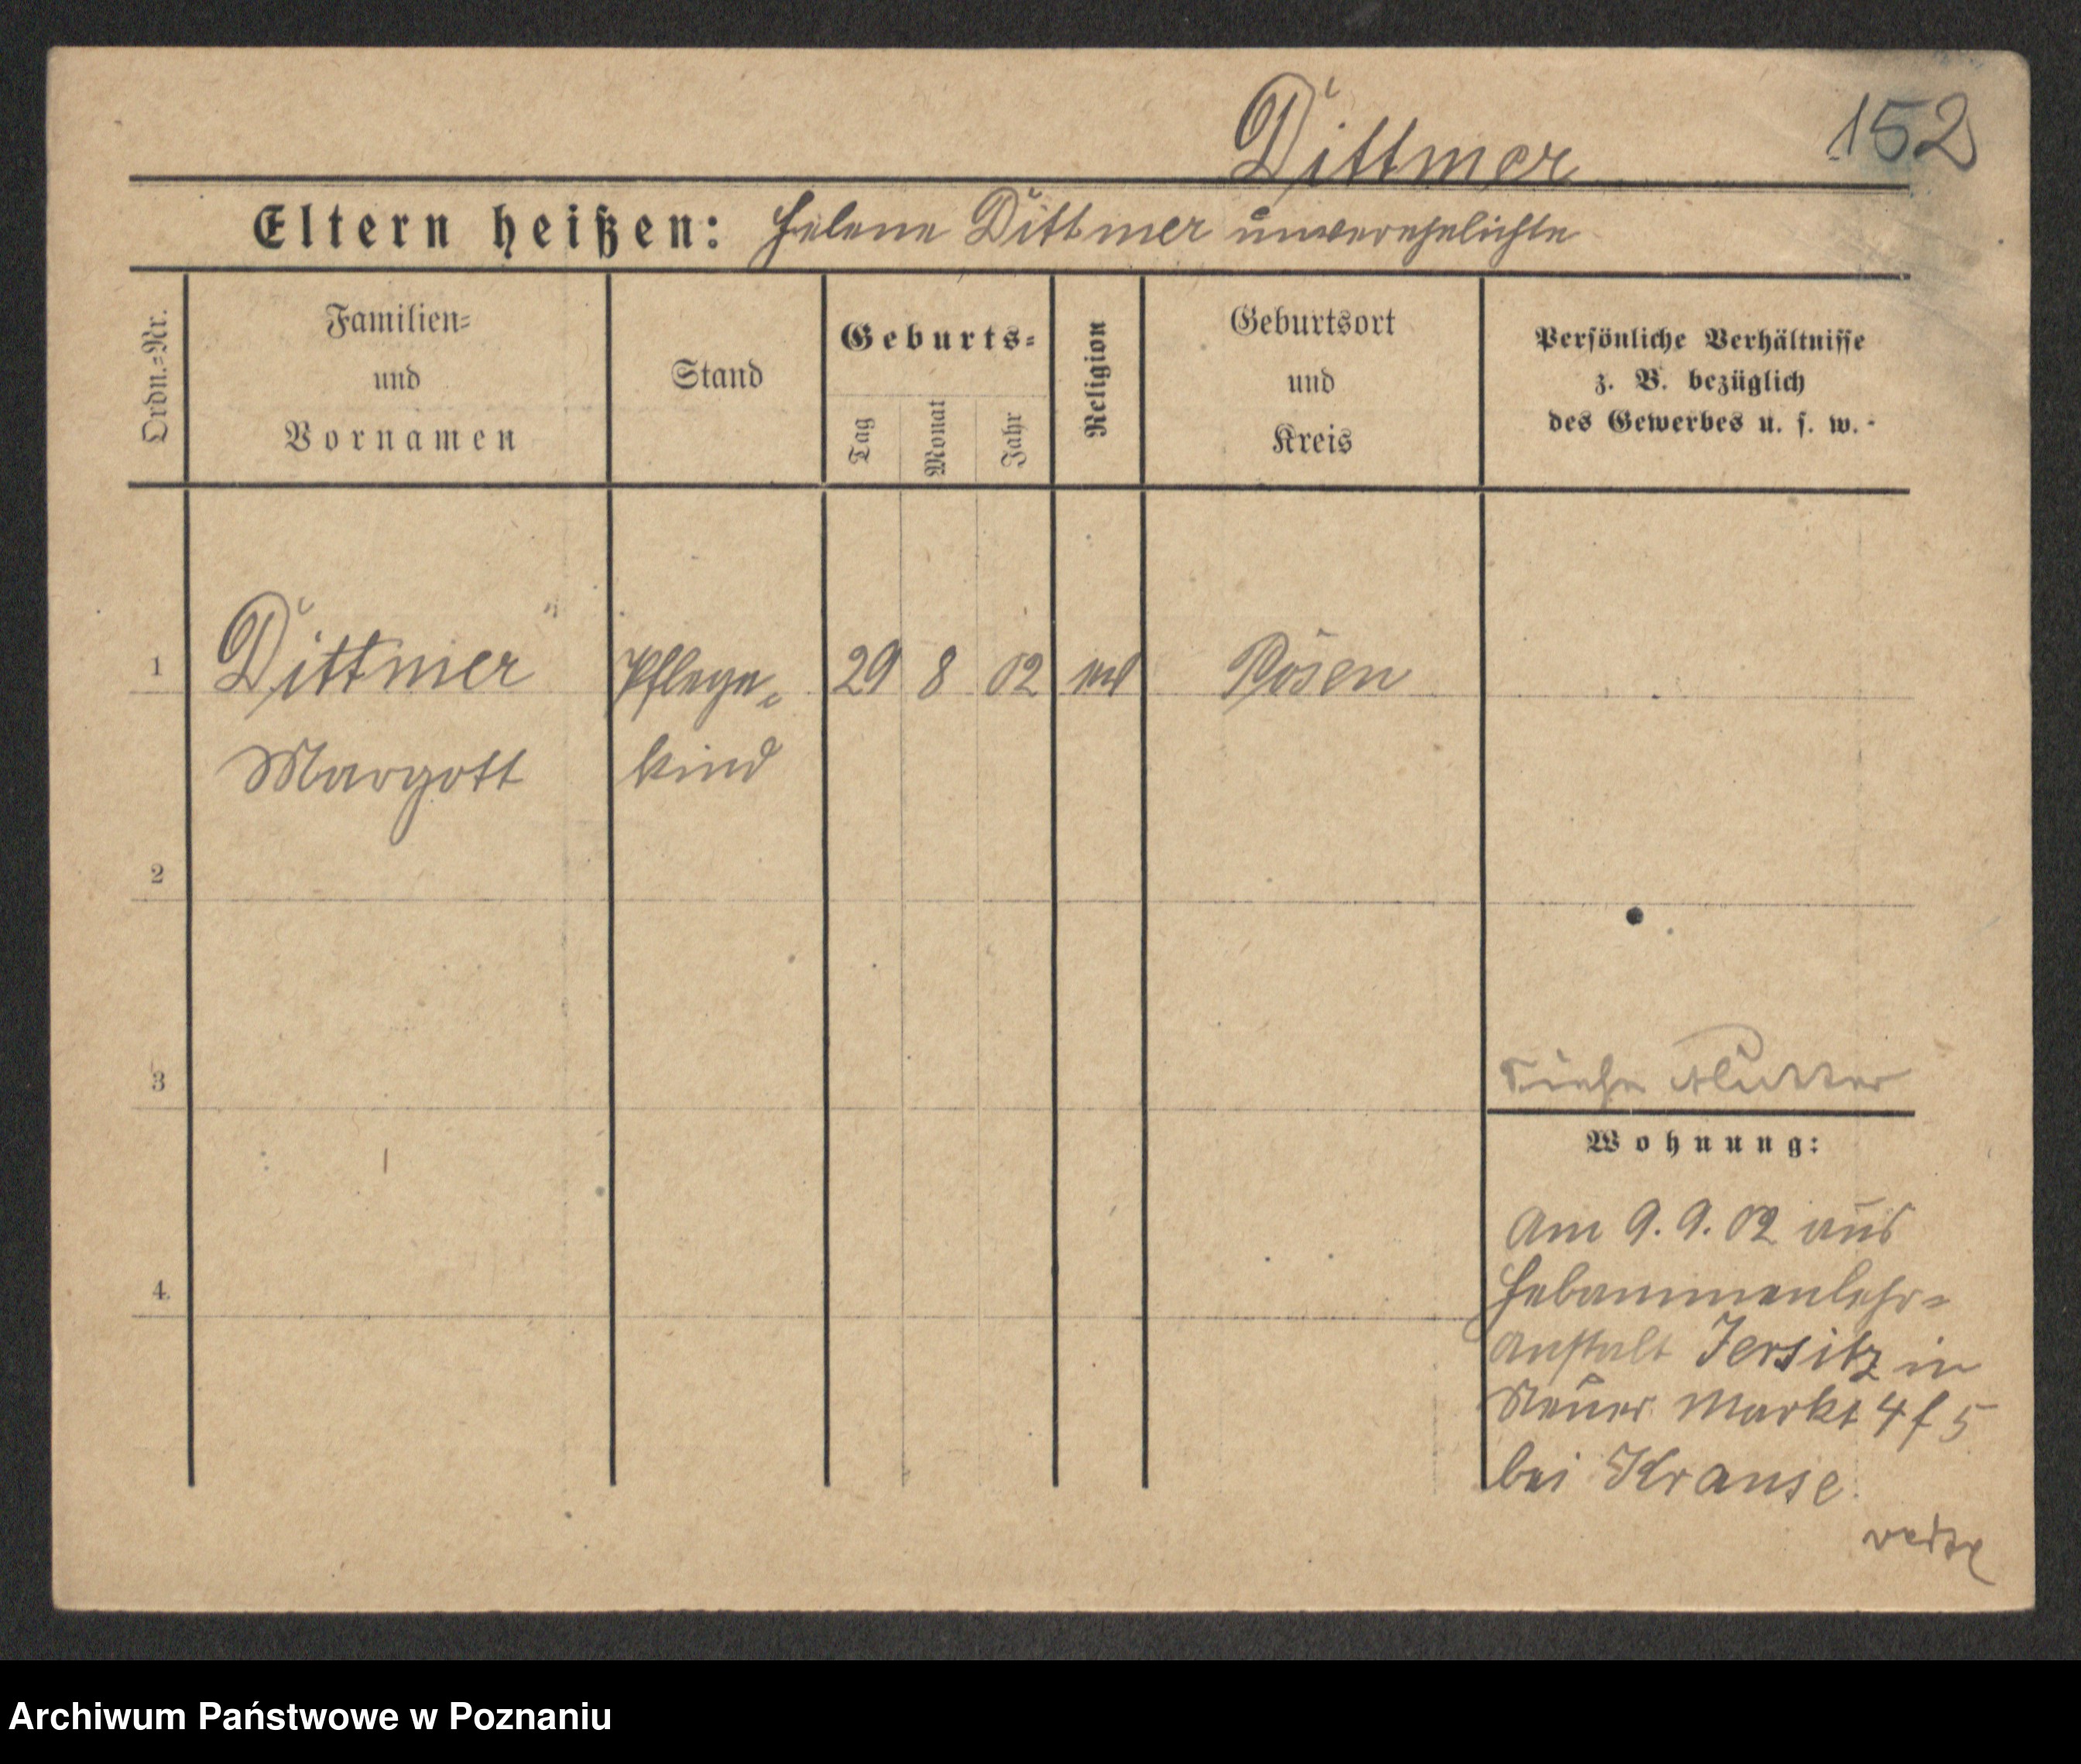 Dittmer
152
Eltern heißen: Helene Dittmer unverehelichte
Ordn.-Nr.
Familien-
und
Vornamen
Stand
Geburts-
Tag
Monat
Jahr
Religion
Geburtsort
und
Kreis
Persönliche Verhältnisse
z. B. bezüglich
des Gewerbes u. s. w.
1 Dittmer Pflege- 29 8 02 Posen
Margott kind
2
3
Siehe Mutter
Wohnung:
4.
Am 9.9.02 aus
Hebammenlehr-
anstalt Jersitz in
Neuer Markt 4/5
bei Krause.
Archiwum Państwowe w Poznaniu